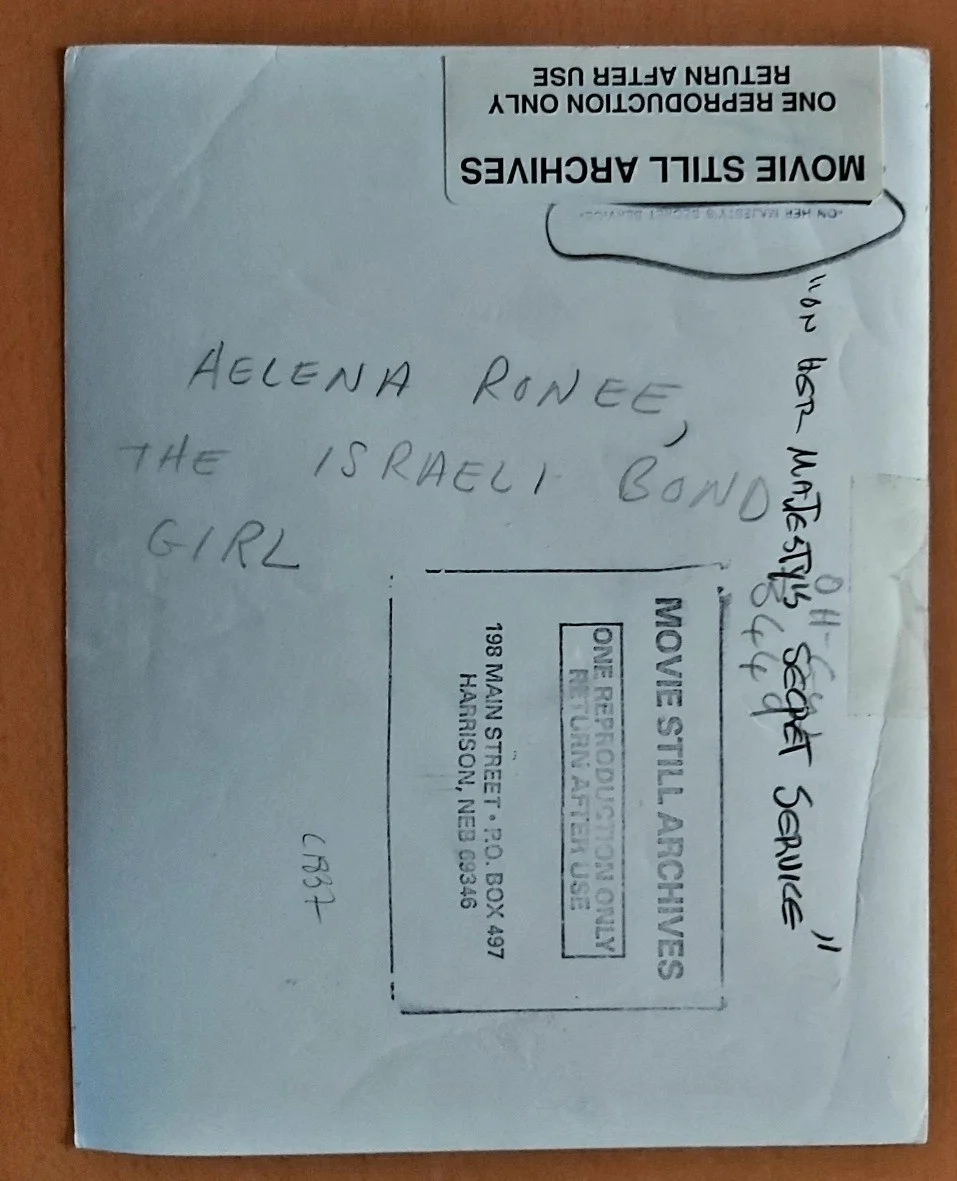 MOVIE STILL ARCHIVES
ONE REPRODUCTION ONLY
RETURN AFTER USE
-ON HER MAJESTY'S SECRET SERVICE-
"ON HER MAJESTY'S SECRET SERVICE"
HELENA RONEE,
THE ISRAELI BOND
GIRL
MOVIE STILL ARCHIVES
ONE REPRODUCTION ONLY
RETURN AFTER USE
198 MAIN STREET • P.O. BOX 497
HARRISON, NEB 69346